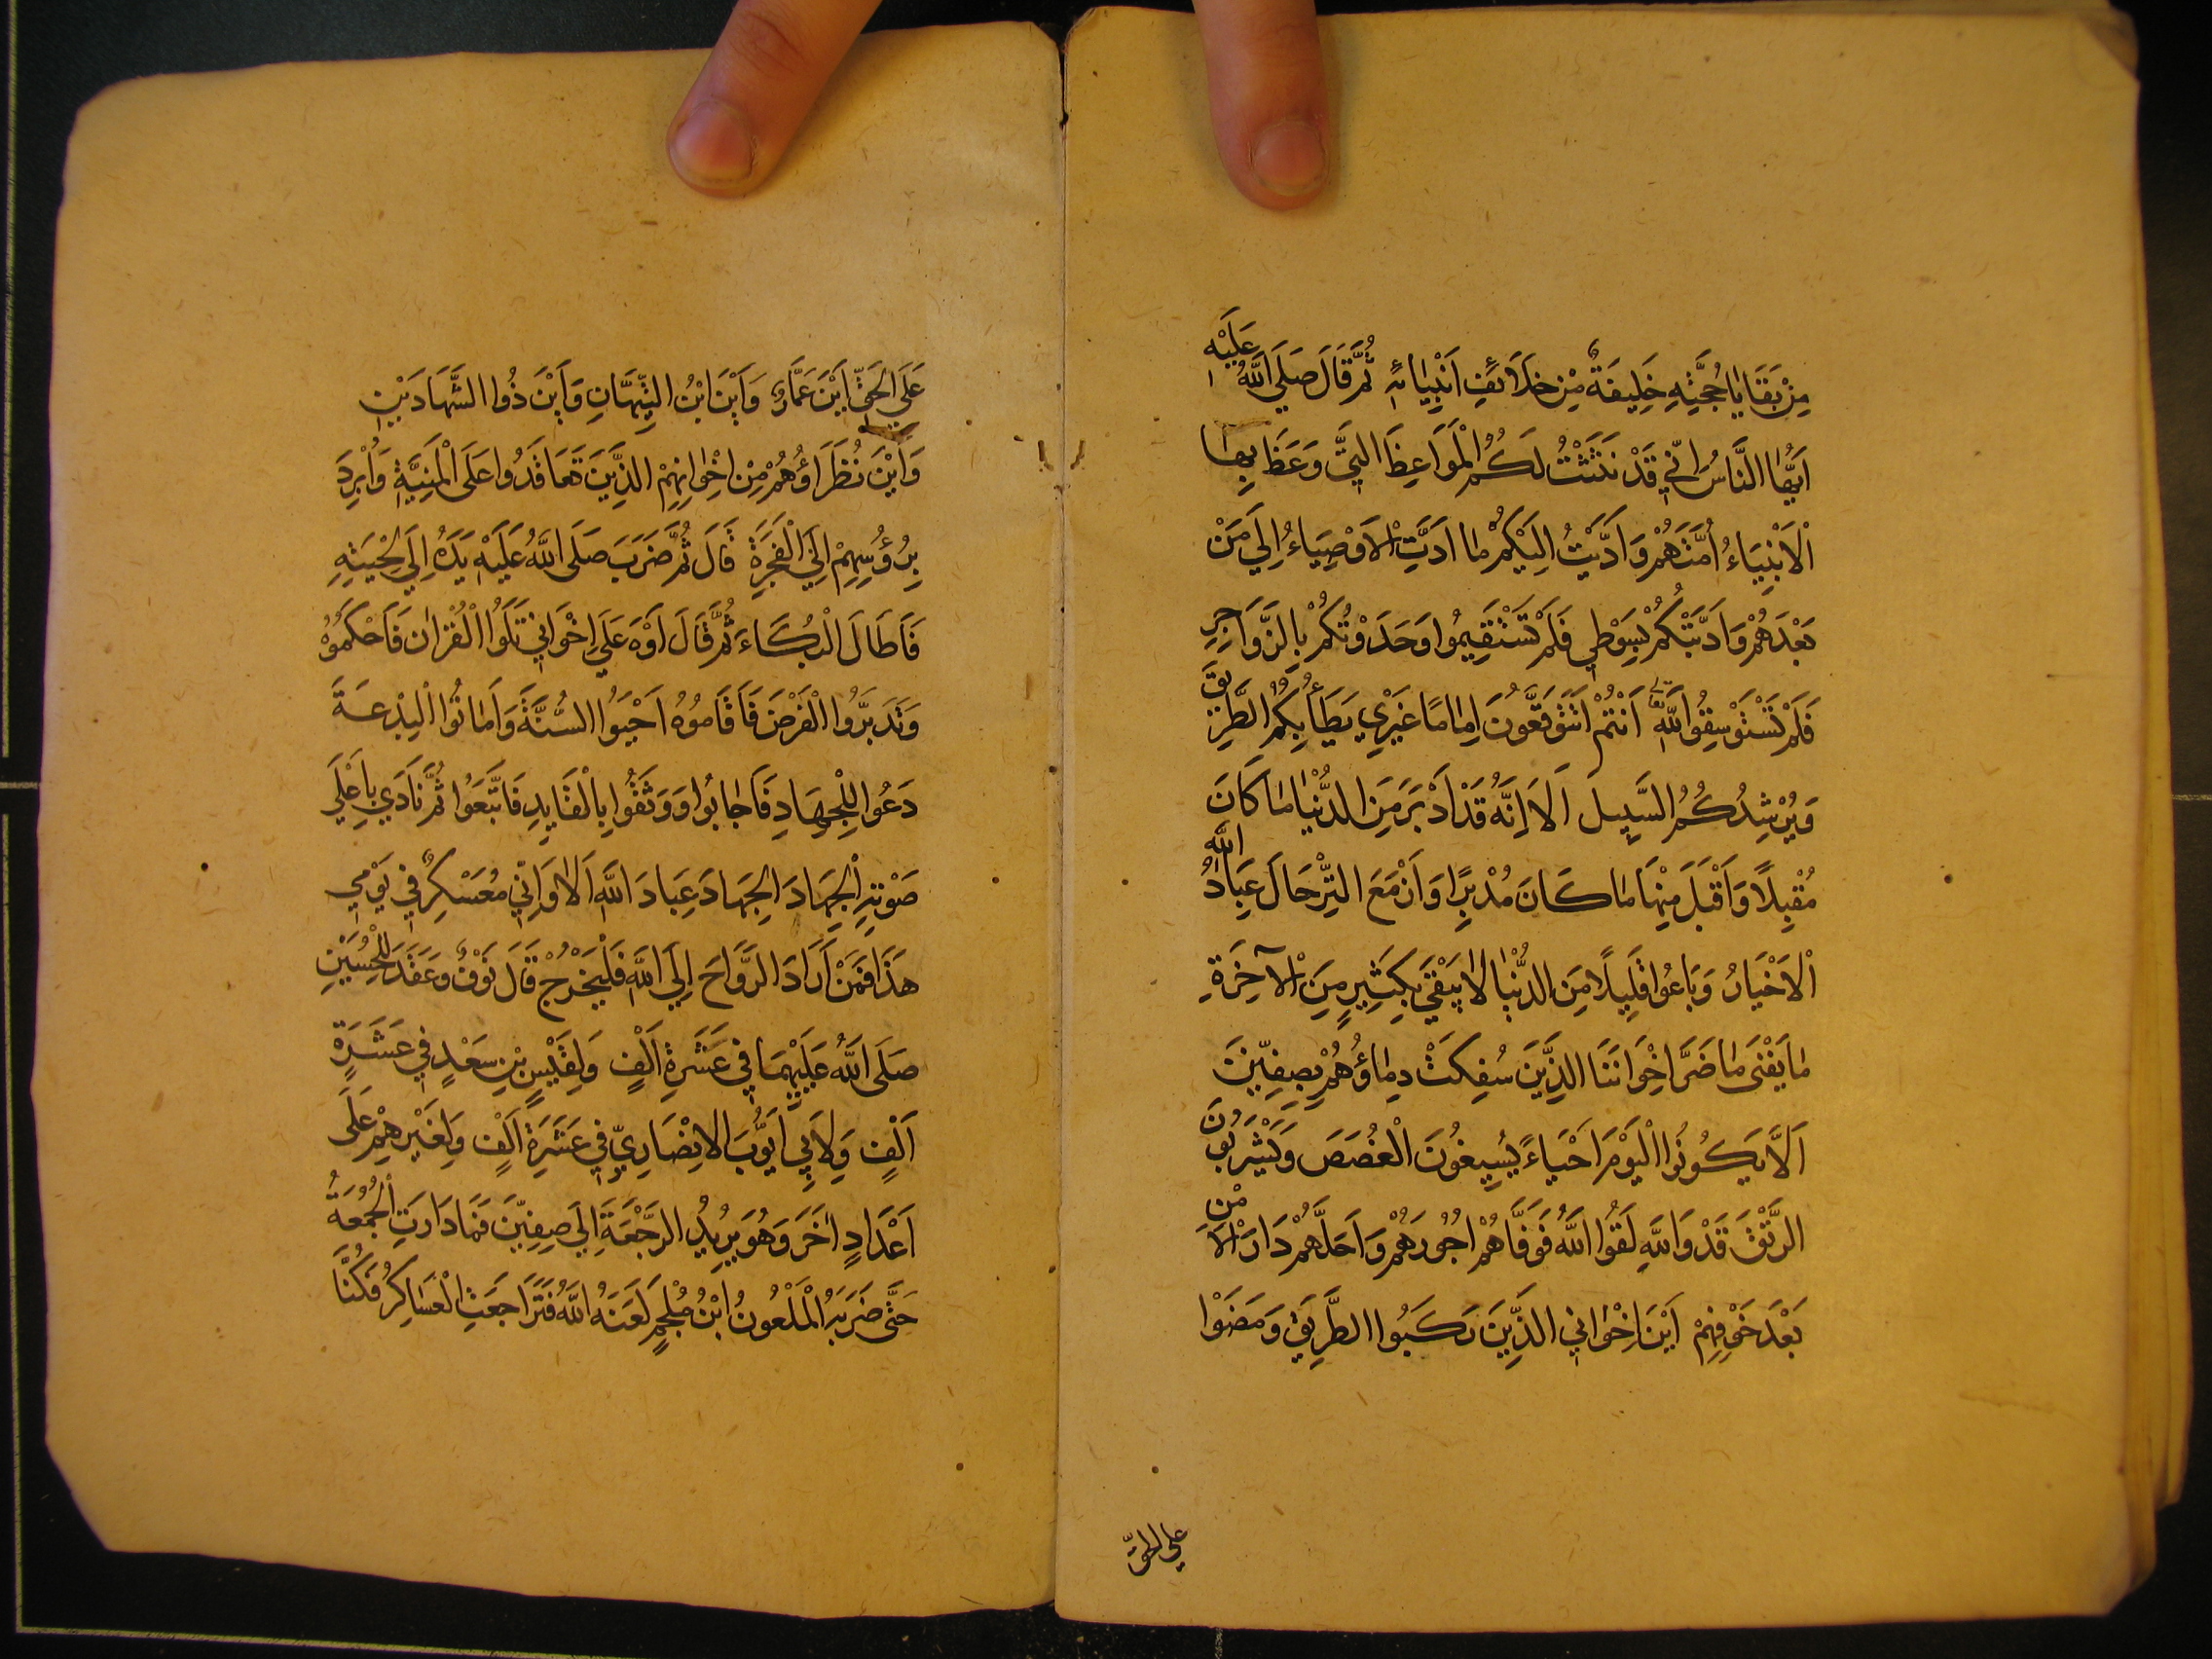 مِنْ بَقَايَا حُجَّتِهِ خَلِيفَةٌ مِنْ خَلَائِفِ اَنْبِيَائِهِ ثُمَّ قَالَ صَلَى اللَّهُ عَلَيْهِ
اَيُّهَا النَّاسُ اِنِّي قَدْ بَثَثْتُ لَكُمُ الْمَوَاعِظَ الَّتِي وَعَظَ بِهَا
الْاَنْبِيَاءُ اُمَمَهُمْ وَاَدَّيْتُ اِلَيْكُمْ مَا اَدَّتِ الْاَوْصِيَاءُ اِلَى مَنْ
بَعْدَهُمْ وَاَدَّبْتُكُمْ بِسَوْطِي فَلَمْ تَسْتَقِيمُوا وَحَدَوْتُكُمْ بِالزَّوَاجِرِ
فَلَمْ تَسْتَوْسِقُوا لِلَّهِ اَنْتُمْ اَتَتَوَقَّعُونَ اِمَامًا غَيْرِي يَطَأُ بِكُمُ الطَّرِيقَ
وَيُرْشِدُكُمُ السَّبِيلَ اَلَا اِنَّهُ قَدْ اَدْبَرَ مِنَ الدُّنْيَا مَا كَانَ
مُقْبِلًا وَاَقْبَلَ مِنْهَا مَا كَانَ مُدْبِرًا وَاَزْمَعَ التِّرْحَالَ عِبَادُ اللَّهِ
الْاَخْيَارُ وَبَاعُوا قَلِيلًا مِنَ الدُّنْيَا لَا يَبْقَى بِكَثِيرٍ مِنَ الْآخِرَةِ
مَا يَفْنَى مَا ضَرَّ اِخْوَانَنَا الَّذِينَ سُفِكَتْ دِمَاؤُهُمْ بِصِفِّينَ
اَلَّا يَكُونُوا الْيَوْمَ اَحْيَاءً يُسِيغُونَ الْغُصَصَ وَيَشْرَبُونَ
الرَّنْقَ قَدْ وَاللَّهِ لَقُوا اللَّهَ فَوَفَّاهُمْ اُجُورَهُمْ وَاَحَلَّهُمْ دَارَ الْاَمْنِ
بَعْدَ خَوْفِهِمْ اَيْنَ اِخْوَانِي الَّذِينَ رَكِبُوا الطَّرِيقَ وَمَضَوْا
علي الحقّ
عَلَى الْحَقِّ اَيْنَ عَمَّارٌ وَاَيْنَ ابْنُ التَّيِّهَانِ وَاَيْنَ ذُوا الشَّهَادَتَيْنِ
وَاَيْنَ نُظَرَاؤُهُمْ مِنْ اِخْوَانِهِمْ الَّذِينَ تَعَاقَدُوا عَلَى الْمَنِيَّةِ وَاُبْرِدَ
بِرُؤُسِهِمْ اِلَى الْفَجَرَةِ قَالَ ثُمَّ ضَرَبَ صَلَى اللَّهُ عَلَيْهِ يَدَهُ اِلَى لِحْيَتِهِ
فَاَطَالَ الْبُكَاءَ ثُمَّ قَالَ اَوْهَ عَلَى اِخْوَانِي تَلَوُا الْقُرْانَ فَاَحْكَمُوهُ
وَتَدَبَّرُوا الْفَرْضَ فَاَقَامُوهُ اَحْيَوُا السُّنَّةَ وَاَمَاتُوا الْبِدْعَةَ
دَعُوا لِلْجِهَادِ فَاَجَابُوا وَوَثَقُوا بِالْقَايِدِ فَاتَّبَعُوا ثُمَّ نَادَي بِاَعْلَى
صَوْتِهِ الْجِهَادَ الْجِهَادَ عِبَادَ اللَّهِ اَلَا وَاِنِّي مُعَسْكِرٌ فِي يَوْمِي
هَذَا فَمَنْ اَرَادَ الرَّوَاحَ اِلَى اللَّهِ فَلْيَخْرُجْ قَالَ نَوْفٌ وَعَقَدَ لِلْحُسَيْنِ
صَلَى اللَّهُ عَلَيْهِمَا فِي عَشَرَةِ اَلْفٍ وَلِقَيْسِ بْنِ سَعْدٍ فِي عَشَرَةِ
اَلْفٍ وَلِاَبِي اَيُّوبَ الْاَنْصَارِيِّ فِي عَشَرَةِ اَلْفٍ وَلِغَيْرِهِمْ عَلَى
اَعْدَادٍ اُخَرَ وَهُوَ يُرِيدُ الرَّجْعَةَ اِلَى صِفِّينَ فَمَا دَارَتِ الْجُمُعَةُ
حَتَّى ضَرَبَهُ الْمَلْعُونُ ابْنُ مُلْجِمٍ لَعَنَهُ اللَّهُ فَتَرَاجَعَتِ الْعَسَاكِرُ فَكُنَّا